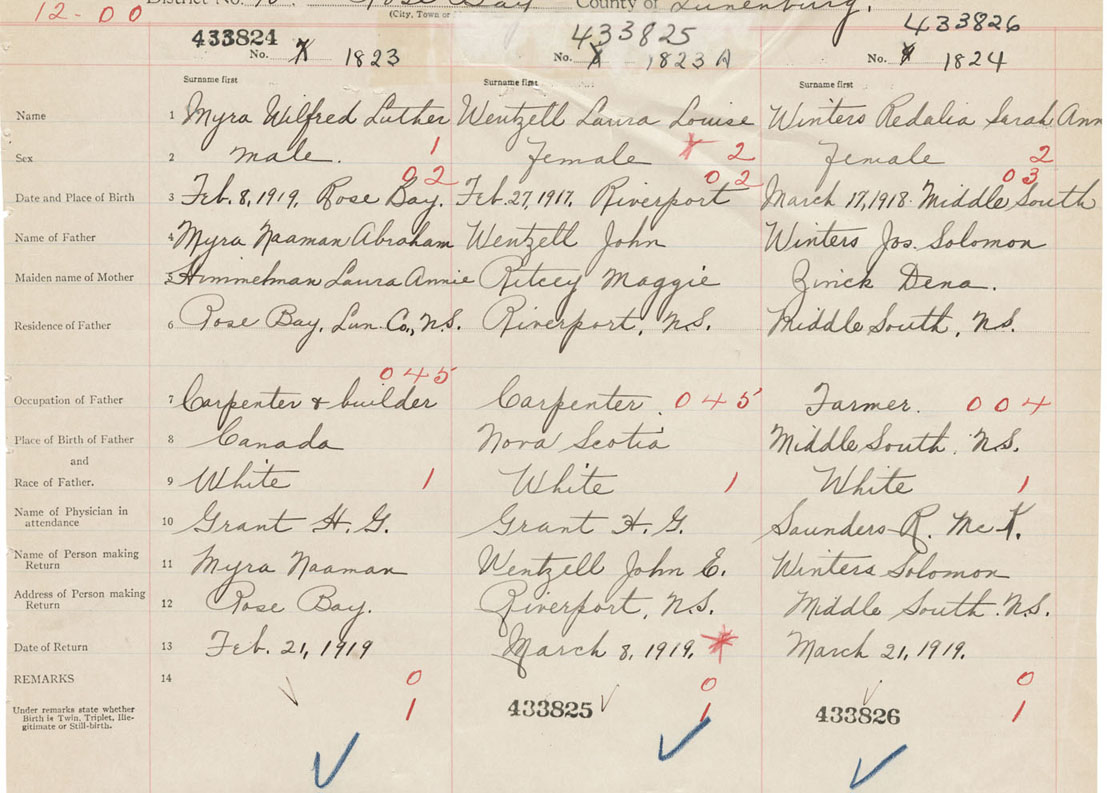 12-00 District No. Rose Bay County of Lunenburg.
(City, Town or
433824 433825 433826
No. 1823 No. 1823 A No. 1824
Surname first Surname first Surname first
Name 1 Myra Wilfred Luther Wentzell Laura Louise Winters Redalia Sarah Ann
Sex 2 male. 1 Female 2 Female 2
02 02 03
Date and Place of Birth 3 Feb. 8, 1919, Rose Bay. Feb. 27, 1917, Riverport March 17, 1918. Middle South
Name of Father 4 Myra Naaman Abraham Wentzell John Winters Jos. Solomon
Maiden name of Mother 5 Himmelman Laura Annie Ritcey Maggie Zinck Dena.
Residence of Father 6 Rose Bay, Lun. Co., N.S. Riverport, N.S. Middle South, N.S.
045
Occupation of Father 7 Carpenter & builder Carpenter. 045 Farmer. 004
Place of Birth of Father 8 Canada Nova Scotia Middle South. N.S.
and
Race of Father. 9 White 1 White 1 White 1
Name of Physician in
attendance 10 Grant H. G. Grant H. G. Saunders R. McK.
Name of Person making
Return 11 Myra Naaman Wentzell John E. Winters Solomon
Address of Person making
Return 12 Rose Bay. Riverport, N.S. Middle South. N.S.
Date of Return 13 Feb. 21, 1919 March 8, 1919. March 21, 1919.
REMARKS 14 0 0 0
Under remarks state whether
Birth is Twin, Triplet, Ille-
gitimate or Still-birth.
1 433825 1 433826 1